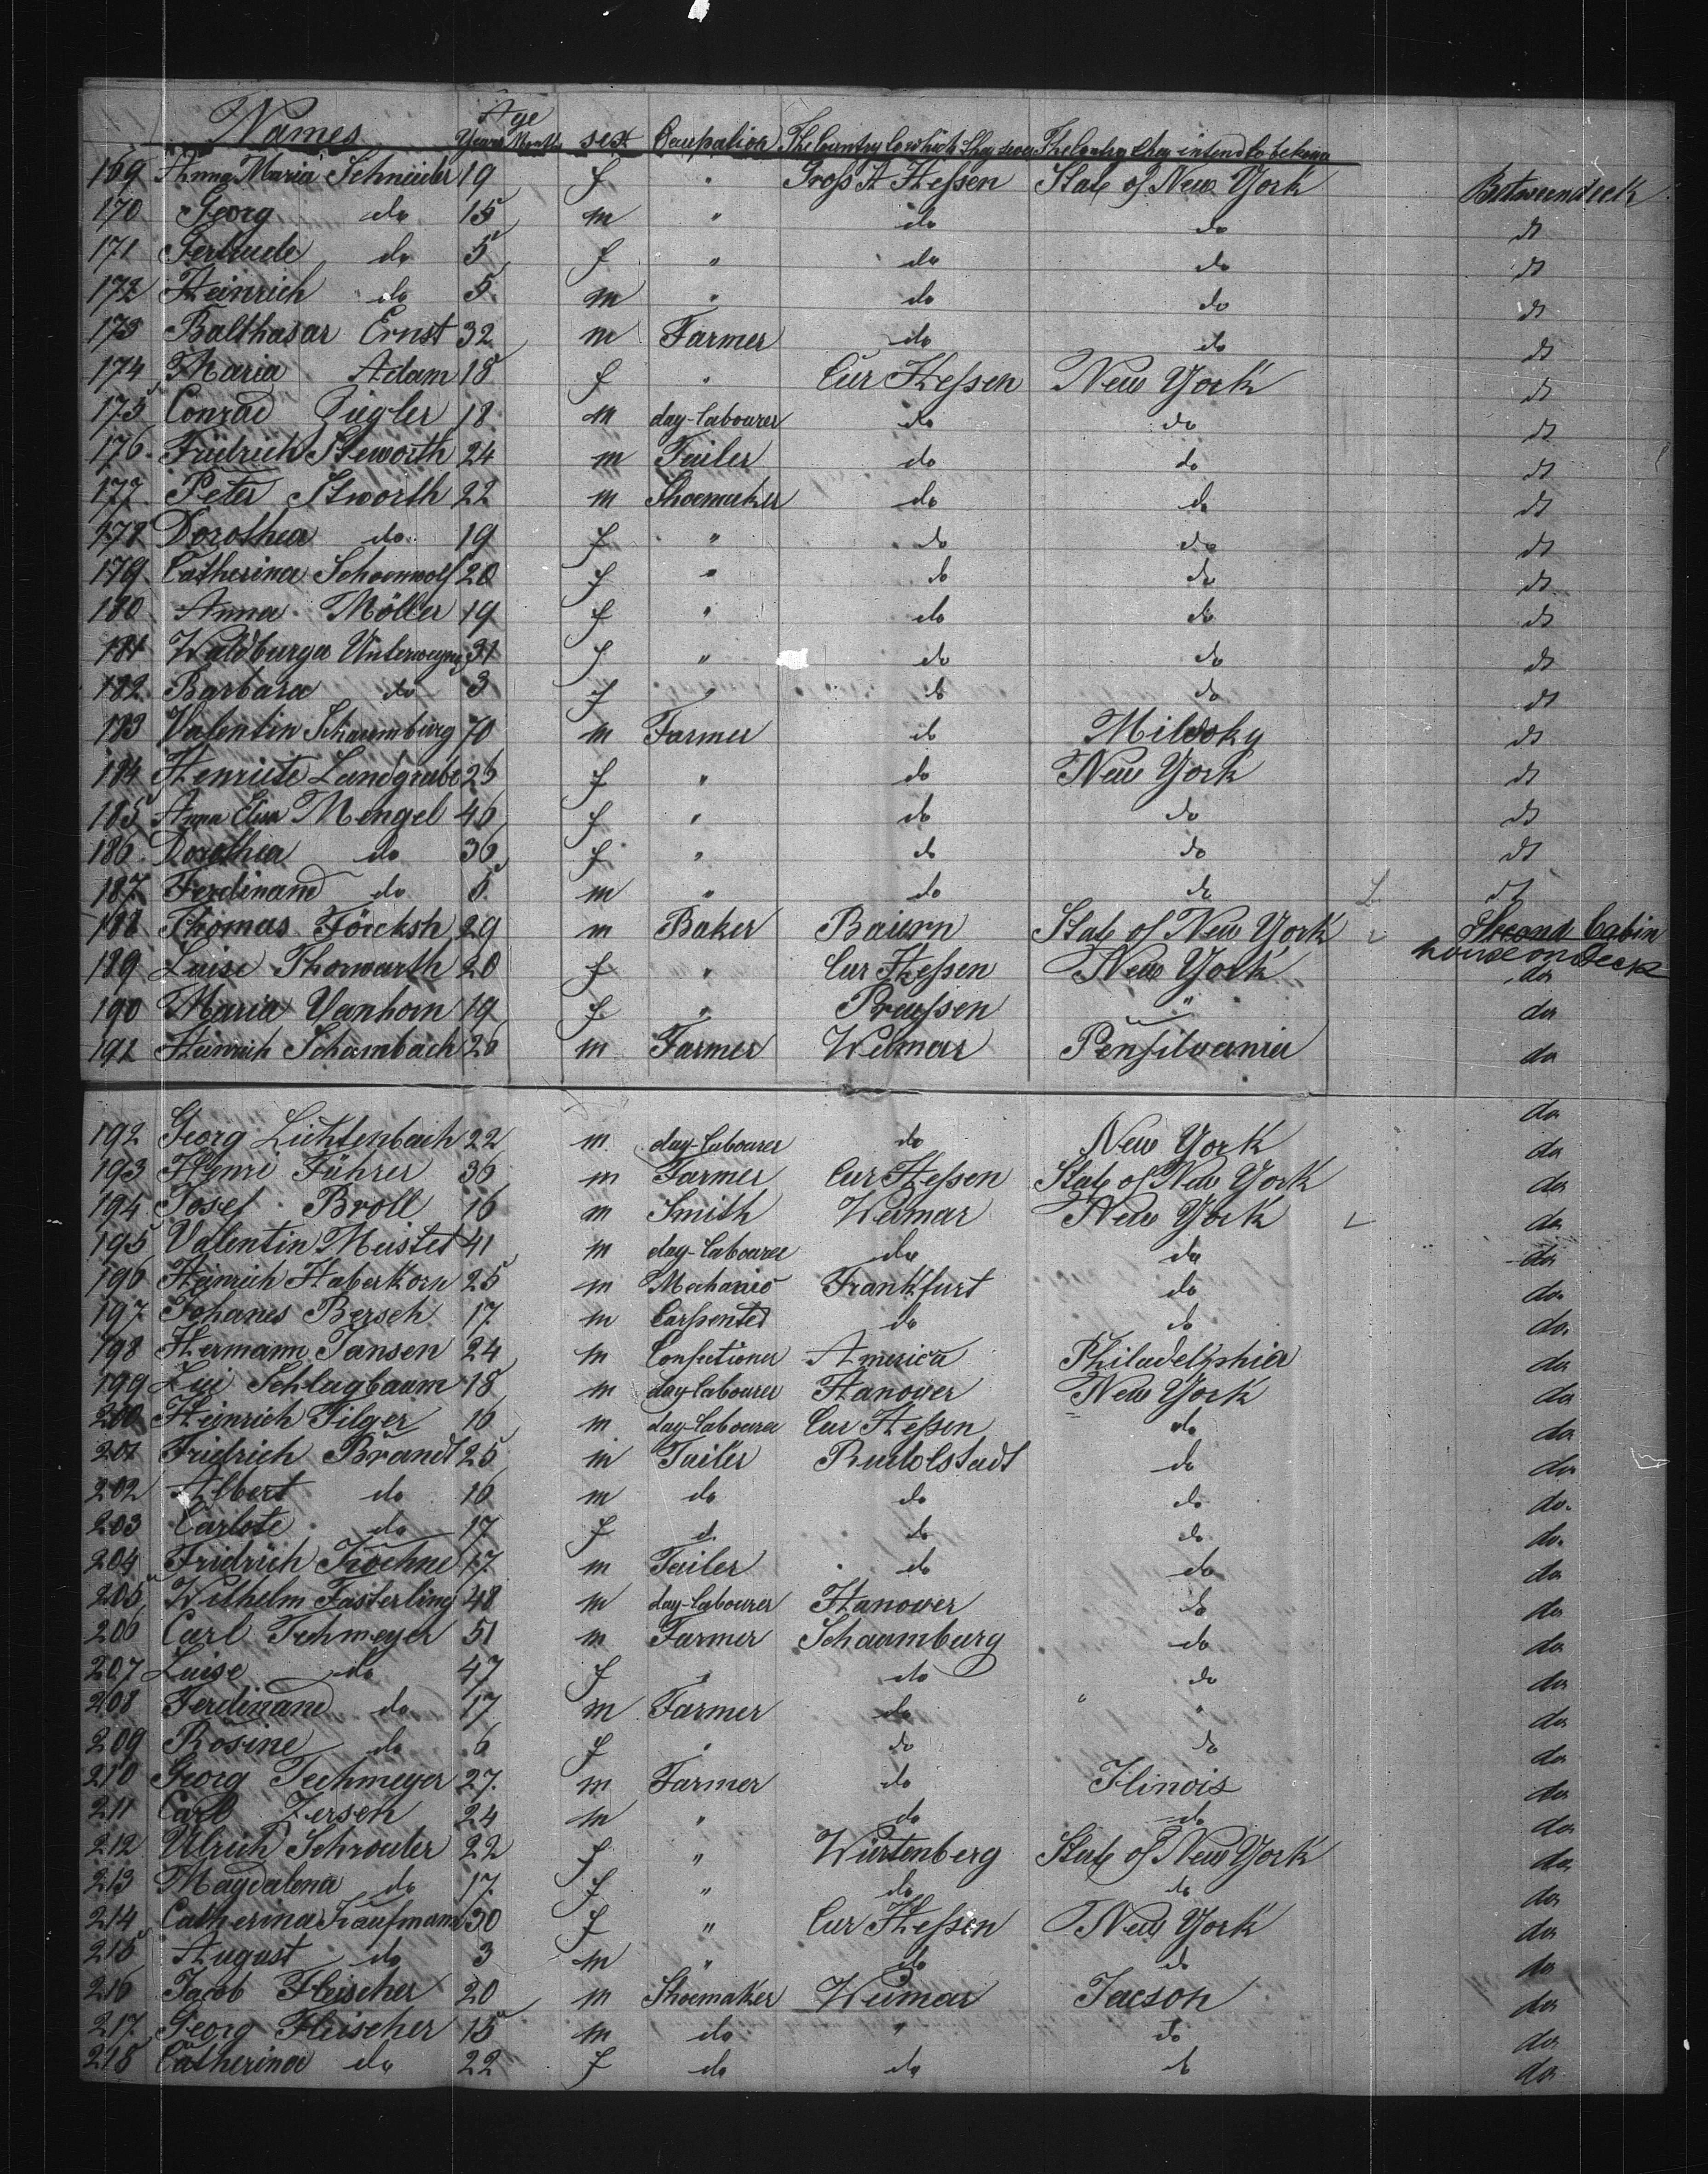 Names Age sex Occupation
Years Month
169 Anna Maria Schneider 19 f " Groß H. Heßen State of New York Betweendeck
170 Georg do 15 m " do do do
171 Gertrude do 5 f " do do do
172 Heinrich do 5 m " do do do
173 Balthasar Ernst 32 m Farmer do do do
174 Maria Adam 18 f " Cur Heßen New York do
175 Conrad Ziegler 18 m day-labourer do do do
176 Friedrich 24 m Tailer do do do
177 Peter 22 m Shoemaker do do do
178 Dorothea do 19 f " do do do
179 Catherina Schoenwolf 20 f " do do do
180 Anna Möller 19 f " do do do
181 Waldburga 31 f " do do do
182 Barbara do 3 f " do do do
183 Valentin Schaumburg 70 m Farmer do do
184 Henriete Landgrabe 25 f " do New York do
185 Anna Elisa Mengel 46 f " do do do
186 Dorothea do 36 f " do do do
187 Ferdinand do 5 m " do do do
188 Thomas 29 m Baker Baiern State of New York Second Cabin
house on Deck
189 Luise Thorwarth 20 f " Cur Heßen New York do
190 Maria Vanhorn 19 f " Preußen " do
191 Heinrich Schambach 26 m Farmer Weimar Pensilvania do
do
192 Georg Lichtenbach 22 m day-labourer do New York do
193 Henri Führer 36 m Farmer Cur Heßen State of New York do
194 Josef Broll 16 m Smith Weimar New York do
195 Valentin Meister 41 m day-labourer do do do
196 Heinrich Haberkorn 25 m Mechanic Frankfurt do do
197 Johanes Bersch 17 m Carpenter do do do
198 Hermann Jansen 24 m Confectioner America Philadelphia do
199 Schlagbaum 18 m day-labourer Hanover New York do
200 Heinrich Filger 16 m day-labourer Cur Heßen do do
201 Fridrich Brandt 25 m Tailer Rudolstadt do do
202 Albert do 16 m do do do do
203 Carlote do 17 f d. do do do
204 Fridrich Koehne 17 m Tailer do do do
205 Wilhelm Fasterling 48 m day-labourer Hanover do do
206 Carl Techmeyer 51 m Farmer Schaumburg do do
207 Luise do 47 f " do do do
208 Ferdinand do 17 m Farmer do " do
209 Rosine do 6 f " do do do
210 Georg Techmeyer 27 m Farmer do Ilinois do
211 Carl Zersen 24 m " do do do
212 Ulrich 22 f " Würtenberg State of New York do
213 Magdalena do 17 f " do do do
214 Catherina Kaufmann 30 f " Cur Heßen New York do
215 August do 3 m " do do do
216 Jacob Fleischer 20 m Shoemaker Weimar Jacson do
217 Georg Fleischer 15 m do " do do
218 Catherina do 22 f do do do do